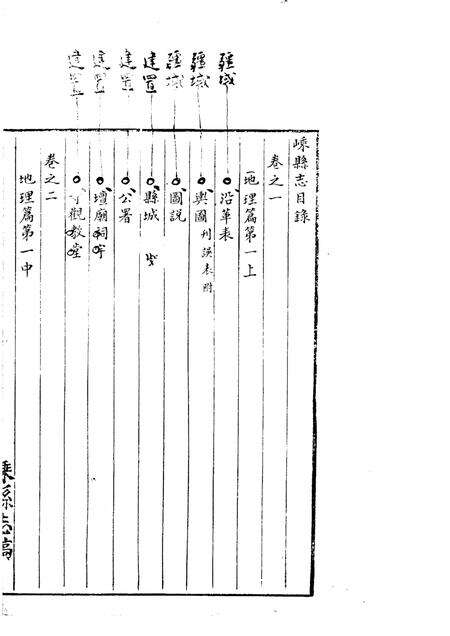 嵊縣志目錄
卷之一
地理篇第一上
疆域
沿革表
疆域
輿圖 刋誤表附
疆域
圖説
建置
縣城
建置
公署
建置
壇廟祠宇
建置
寺觀教堂
卷之二
地理篇第一中
嵊縣志稿